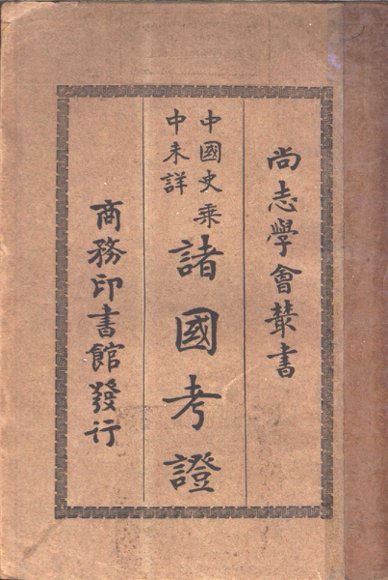 尚志學會叢書
中國史乘
中未詳
諸國考證
商務印書館發行